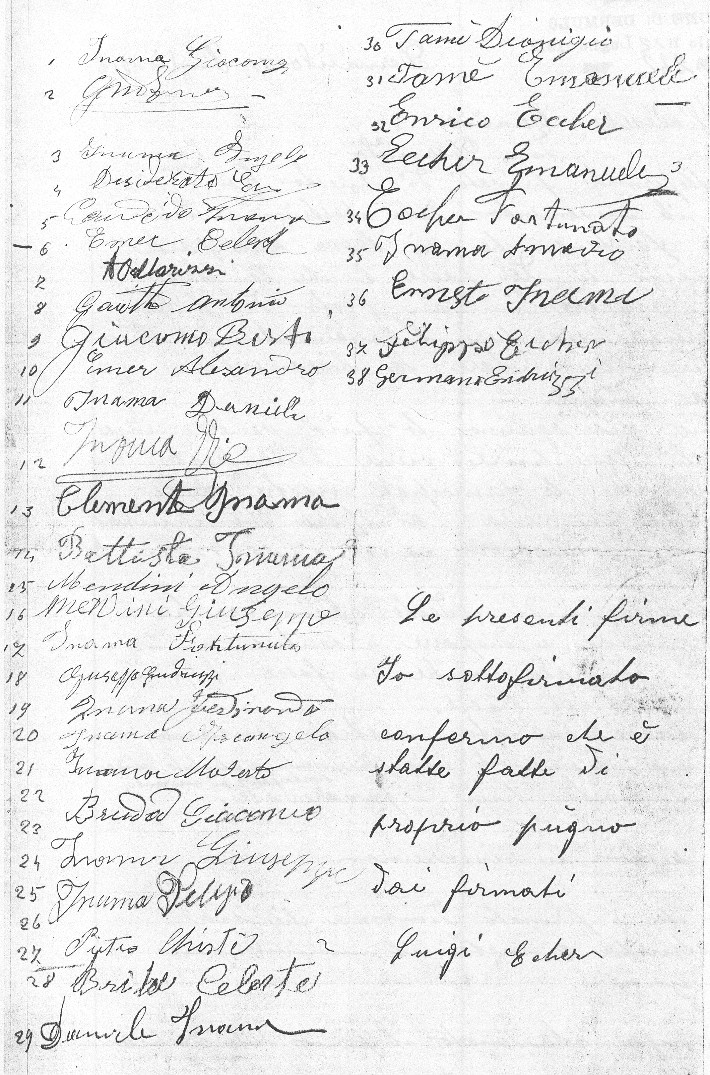 1 Inama Giacomo
2
3 Inama Angelo
4 Desiderato
5 Candido Inama
6 Emer
7
8 Antonio
9 Giacomo Berti
10 Emer Alesandro
11 Inama Daniele
12 Inama
13 Clemente Inama
14 Battista Inama
15 Mendini Angelo
16 Mendini Giuseppe
17 Inama Fortunato
18 Giuseppe Endrizzi
19 Inama Ferdinando
20 Inama Arcangelo
21 Inama
22
23 Brida Giacomo
24 Inama Giuseppe
25 Inama
26
27 Chisté
28 Brida Celeste
29 Daniele Inama
30 Tamè Dionigio
31 Tamè Emanuele
32 Enrico Eccher
33 Eccher Emanuele 3
34 Eccher Fortunato
35 Inama Amadio
36 Ernesto Inama
37 Filippo Eccher
38 Germano Endrizzi
Le presenti firme
Io sottofirmato
confermo che è
statte fatte di
proprio pugno
dai firmati
Luigi Echer